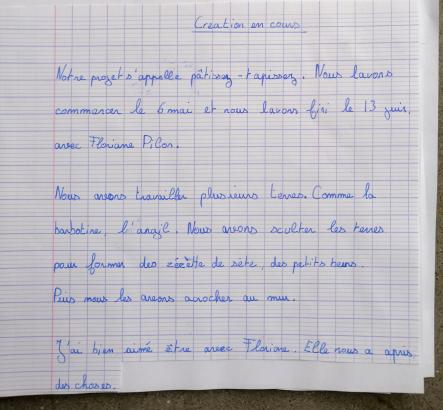 Création en cours
Notre projet s'appelle pâtissez-tapissez. Nous lavons
commencer le 6 mai et nous lavons fini le 13 juin,
avec Floriane Pilon.
Nous avons travailler plusieurs terres. Comme la
barbotine, l'argil. Nous avons sculter les terres
pour former des zézette de sète, des petits beurs.
Puis nous les avons acrocher au mur.
J'ai bien aimé être avec Floriane. Elle nous a apris
des choses.